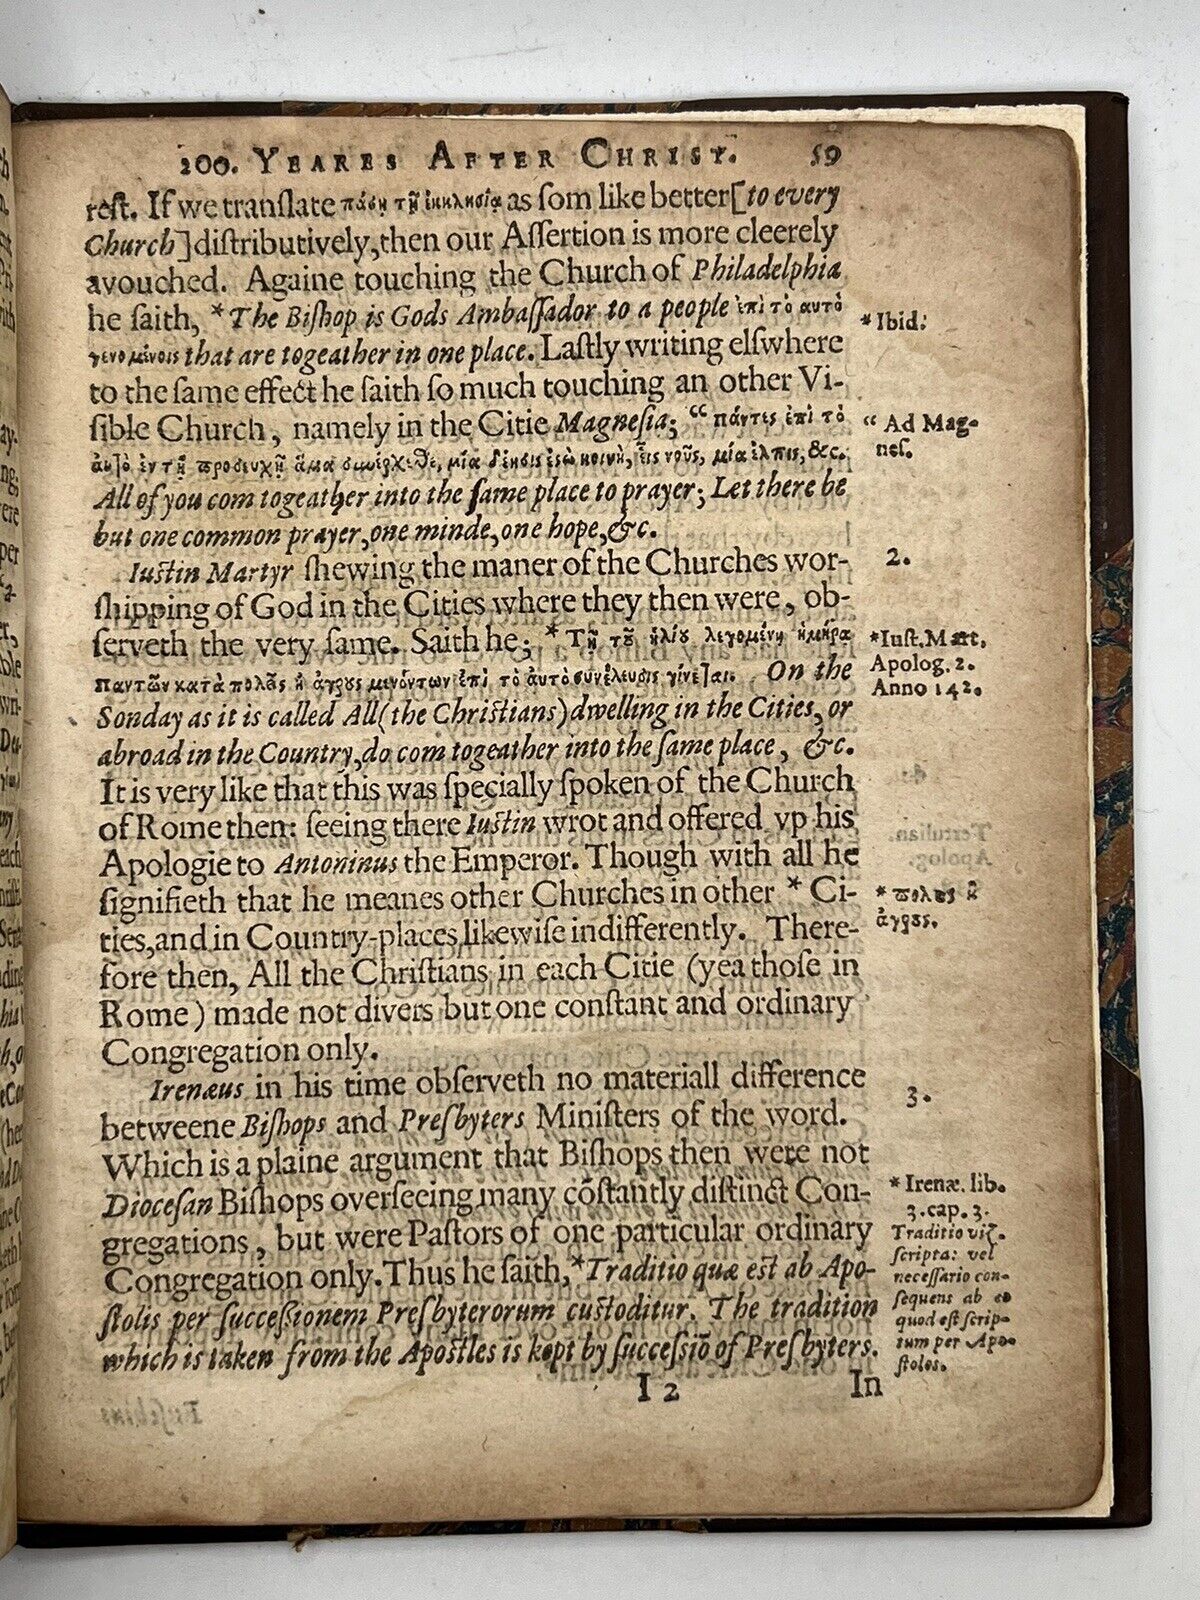 200. YEARES AFTER CHRIST. 59
reſt. If we tranſlate πάσῃ τῇ ἐκκλησίᾳ as ſom like better[to every
Church]diſtributively,then our Aſſertion is more cleerely
avouched. Againe touching the Church of Philadelphia
he ſaith, *The Biſhop is Gods Ambaſſador to a people ἐπὶ τὸ αυτὸ
γενομένοις that are togeather in one place. Laſtly writing elſwhere
to the ſame effect he ſaith ſo much touching an other Vi-
ſible Church, namely in the Citie Magneſia; “ πάντες ἐπὶ τὸ
ἀυτὸ ἐν τῇ προσευχῇ ἅμα συνέρχεσθε, μία δέησις ἔστω κοινὴ, εἷς νοῦς, μία ἐλπις, &c.
All of you com togeather into the ſame place to prayer; Let there be
but one common prayer,one minde,one hope,&c.
Iuſtin Martyr ſhewing the maner of the Churches wor-
ſhipping of God in the Cities where they then were, ob-
ſerveth the very ſame. Saith he; *Τῇ τοῦ ἡλίου λεγομένῃ ἡμέρᾳ
παντῶν κατὰ πολεις ἢ ἀγροὺς μενόντων ἐπὶ τὸ ἀυτὸ συνέλευσις γίνεται. On the
Sonday as it is called All(the Chriſtians)dwelling in the Cities, or
abroad in the Country,do com togeather into the ſame place, &c.
It is very like that this was ſpecially ſpoken of the Church
of Rome then: ſeeing there Iuſtin wrot and offered vp his
Apologie to Antoninus the Emperor. Though with all he
ſignifieth that he meanes other Churches in other * Ci-
ties,and in Country-places likewiſe indifferently. There-
fore then, All the Chriſtians in each Citie (yea thoſe in
Rome) made not divers but one conſtant and ordinary
Congregation only.
Irenæus in his time obſerveth no materiall difference
betweene Biſhops and Preſbyters Miniſters of the word.
Which is a plaine argument that Biſhops then were not
Dioceſan Biſhops overſeeing many cōſtantly diſtinct Con-
gregations, but were Paſtors of one particular ordinary
Congregation only. Thus he ſaith,*Traditio quæ eſt ab Apo-
ſtolis per ſucceſſionem Preſbyterorum cuſtoditur. The tradition
which is taken from the Apoſtles is kept by ſucceſſiō of Preſbyters.
I 2 In
*Ibid:
“ Ad Mag-
neſ.
2.
*Iuſt. Mart.
Apolog. 2.
Anno 142.
* πολεις ἢ
ἀγρους.
3.
* Irenæ. lib.
3. cap. 3.
Traditio viz.
ſcripta: vel
neceſſario con-
ſequens ab eo
quod eſt ſcrip-
tum per Apo-
ſtolos.